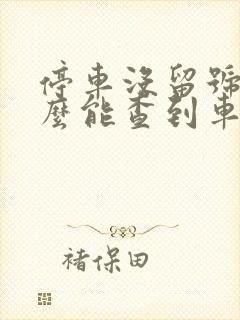 停車沒留號
麼能查到車
褚保田